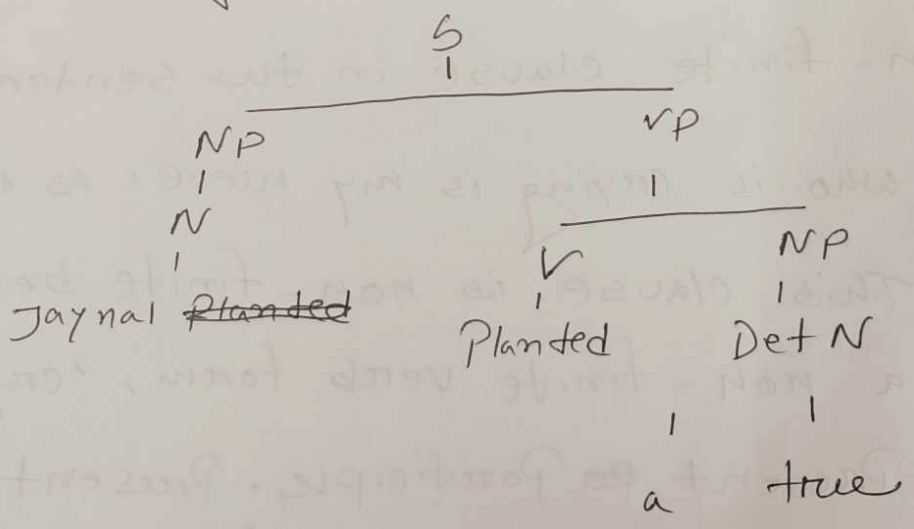 S
NP VP
N
V NP
Jaynal Planted
Planted Det N
a true